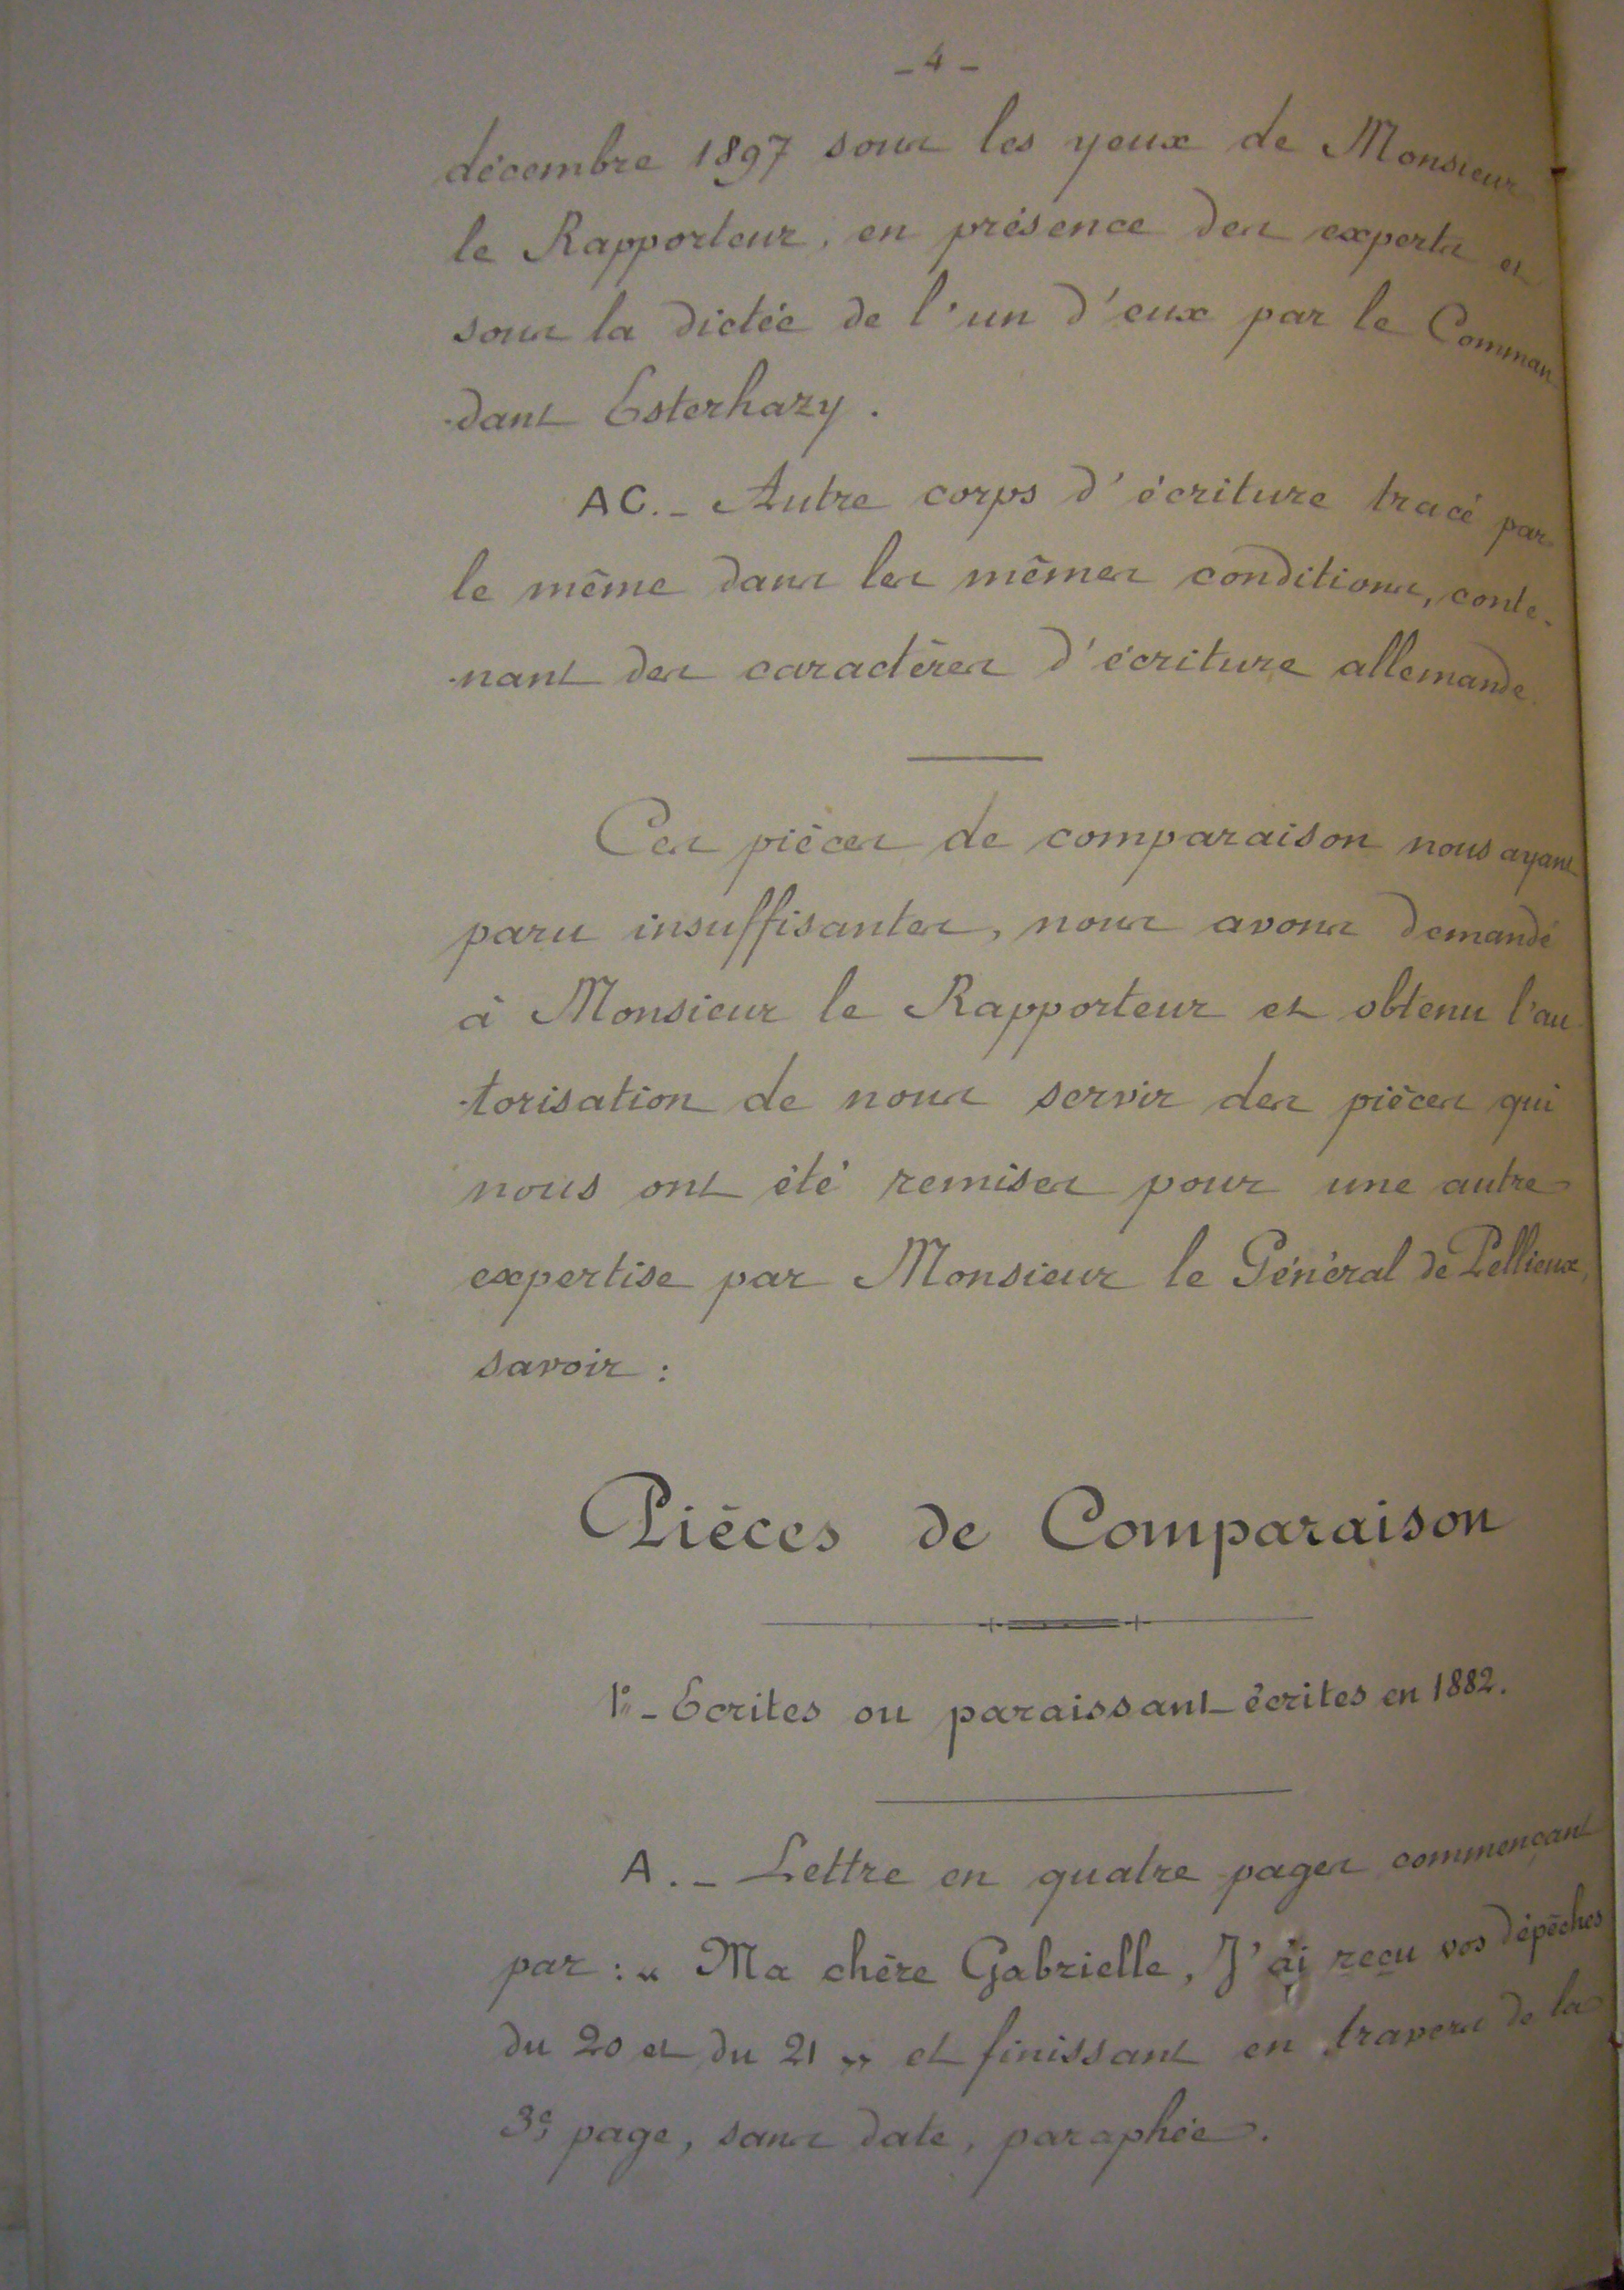 - 4 -
décembre 1897 sous les yeux de Monsieur
le Rapporteur, en présence des experts et
sous la dictée de l'un d'eux par le Comman
-dant Esterhazy.
AC. - Autre corps d'écriture tracé par
le même dans les mêmes conditions, conte-
-nant des caractères d'écriture allemande.
Ces pièces de comparaison nous ayant
paru insuffisantes, nous avons demandé
à Monsieur le Rapporteur et obtenu l'au
-torisation de nous servir des pièces qui
nous ont été remises pour une autre
expertise par Monsieur le Général de Pellieux,
savoir :
Pièces de Comparaison
1º - Ecrites ou paraissant écrites en 1882.
A. - Lettre en quatre pages commençant
par : « Ma chère Gabrielle, J'ai reçu vos dépêches
du 20 et du 21 » et finissant en travers de la
3e page, sans date, paraphée.